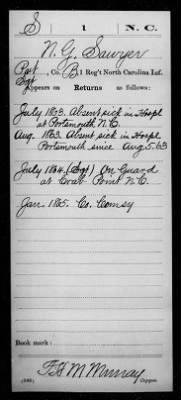 S 1 N. C.
N. G. Sawyer
Pvt, Co. B, 1 Reg't North Carolina Inf.
Sgt
Appears on Returns as follows:
July 1863. Absent sick in Hospl
at Portsmouth N.C.
Aug. 1863. Absent sick in Hospl
Portsmouth since Aug 5.63
July 1864. (Sgt) On Guard
at Croat Point N.C.
Jan. 1865. Co.
Book mark:
F. H. M. Murray
Copyist.